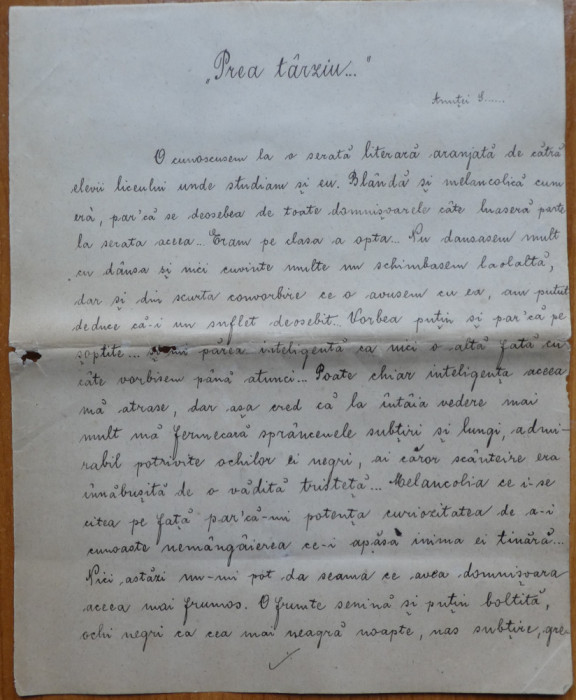 „Prea târziu..."
Anuței S......
O cunoscusem la o serată literară aranjată de cătră
elevii liceului unde studiam și eu. Blândă și melancolică cum
erà, par'că se deosebea de toate domnișoarele câte luaseră parte
la serata aceea... Eram pe clasa a opta... Nu dansasem mult
cu dânsa și nici cuvinte multe nu schimbasem laolaltă,
dar și din scurta convorbire ce o avusem cu ea, am putut
deduce că-i un suflet deosebit. Vorbea puțin și par'că pe
șoptite... părea inteligentă ca nici o altă fată cu
câte vorbisem până atunci... Poate chiar inteligența aceea
mă atrase, dar așa cred că la întâia vedere mai
mult mă fermecară sprâncenele subțiri și lungi, admi-
rabil potrivite ochilor ei negri, ai căror scânteire era
înnăbușită de o vădită tristeță... Melancolia ce i-se
citea pe față par'că-mi potența curiozitatea de a-i
cunoaște nemângâierea ce-i apăsă inima ei tinără...
Nici astăzi nu-mi pot da seamă ce avea domnișoara
aceea mai frumos. O frunte senină și puțin boltită,
ochi negri ca cea mai neagră noapte, nas subțire, gre-